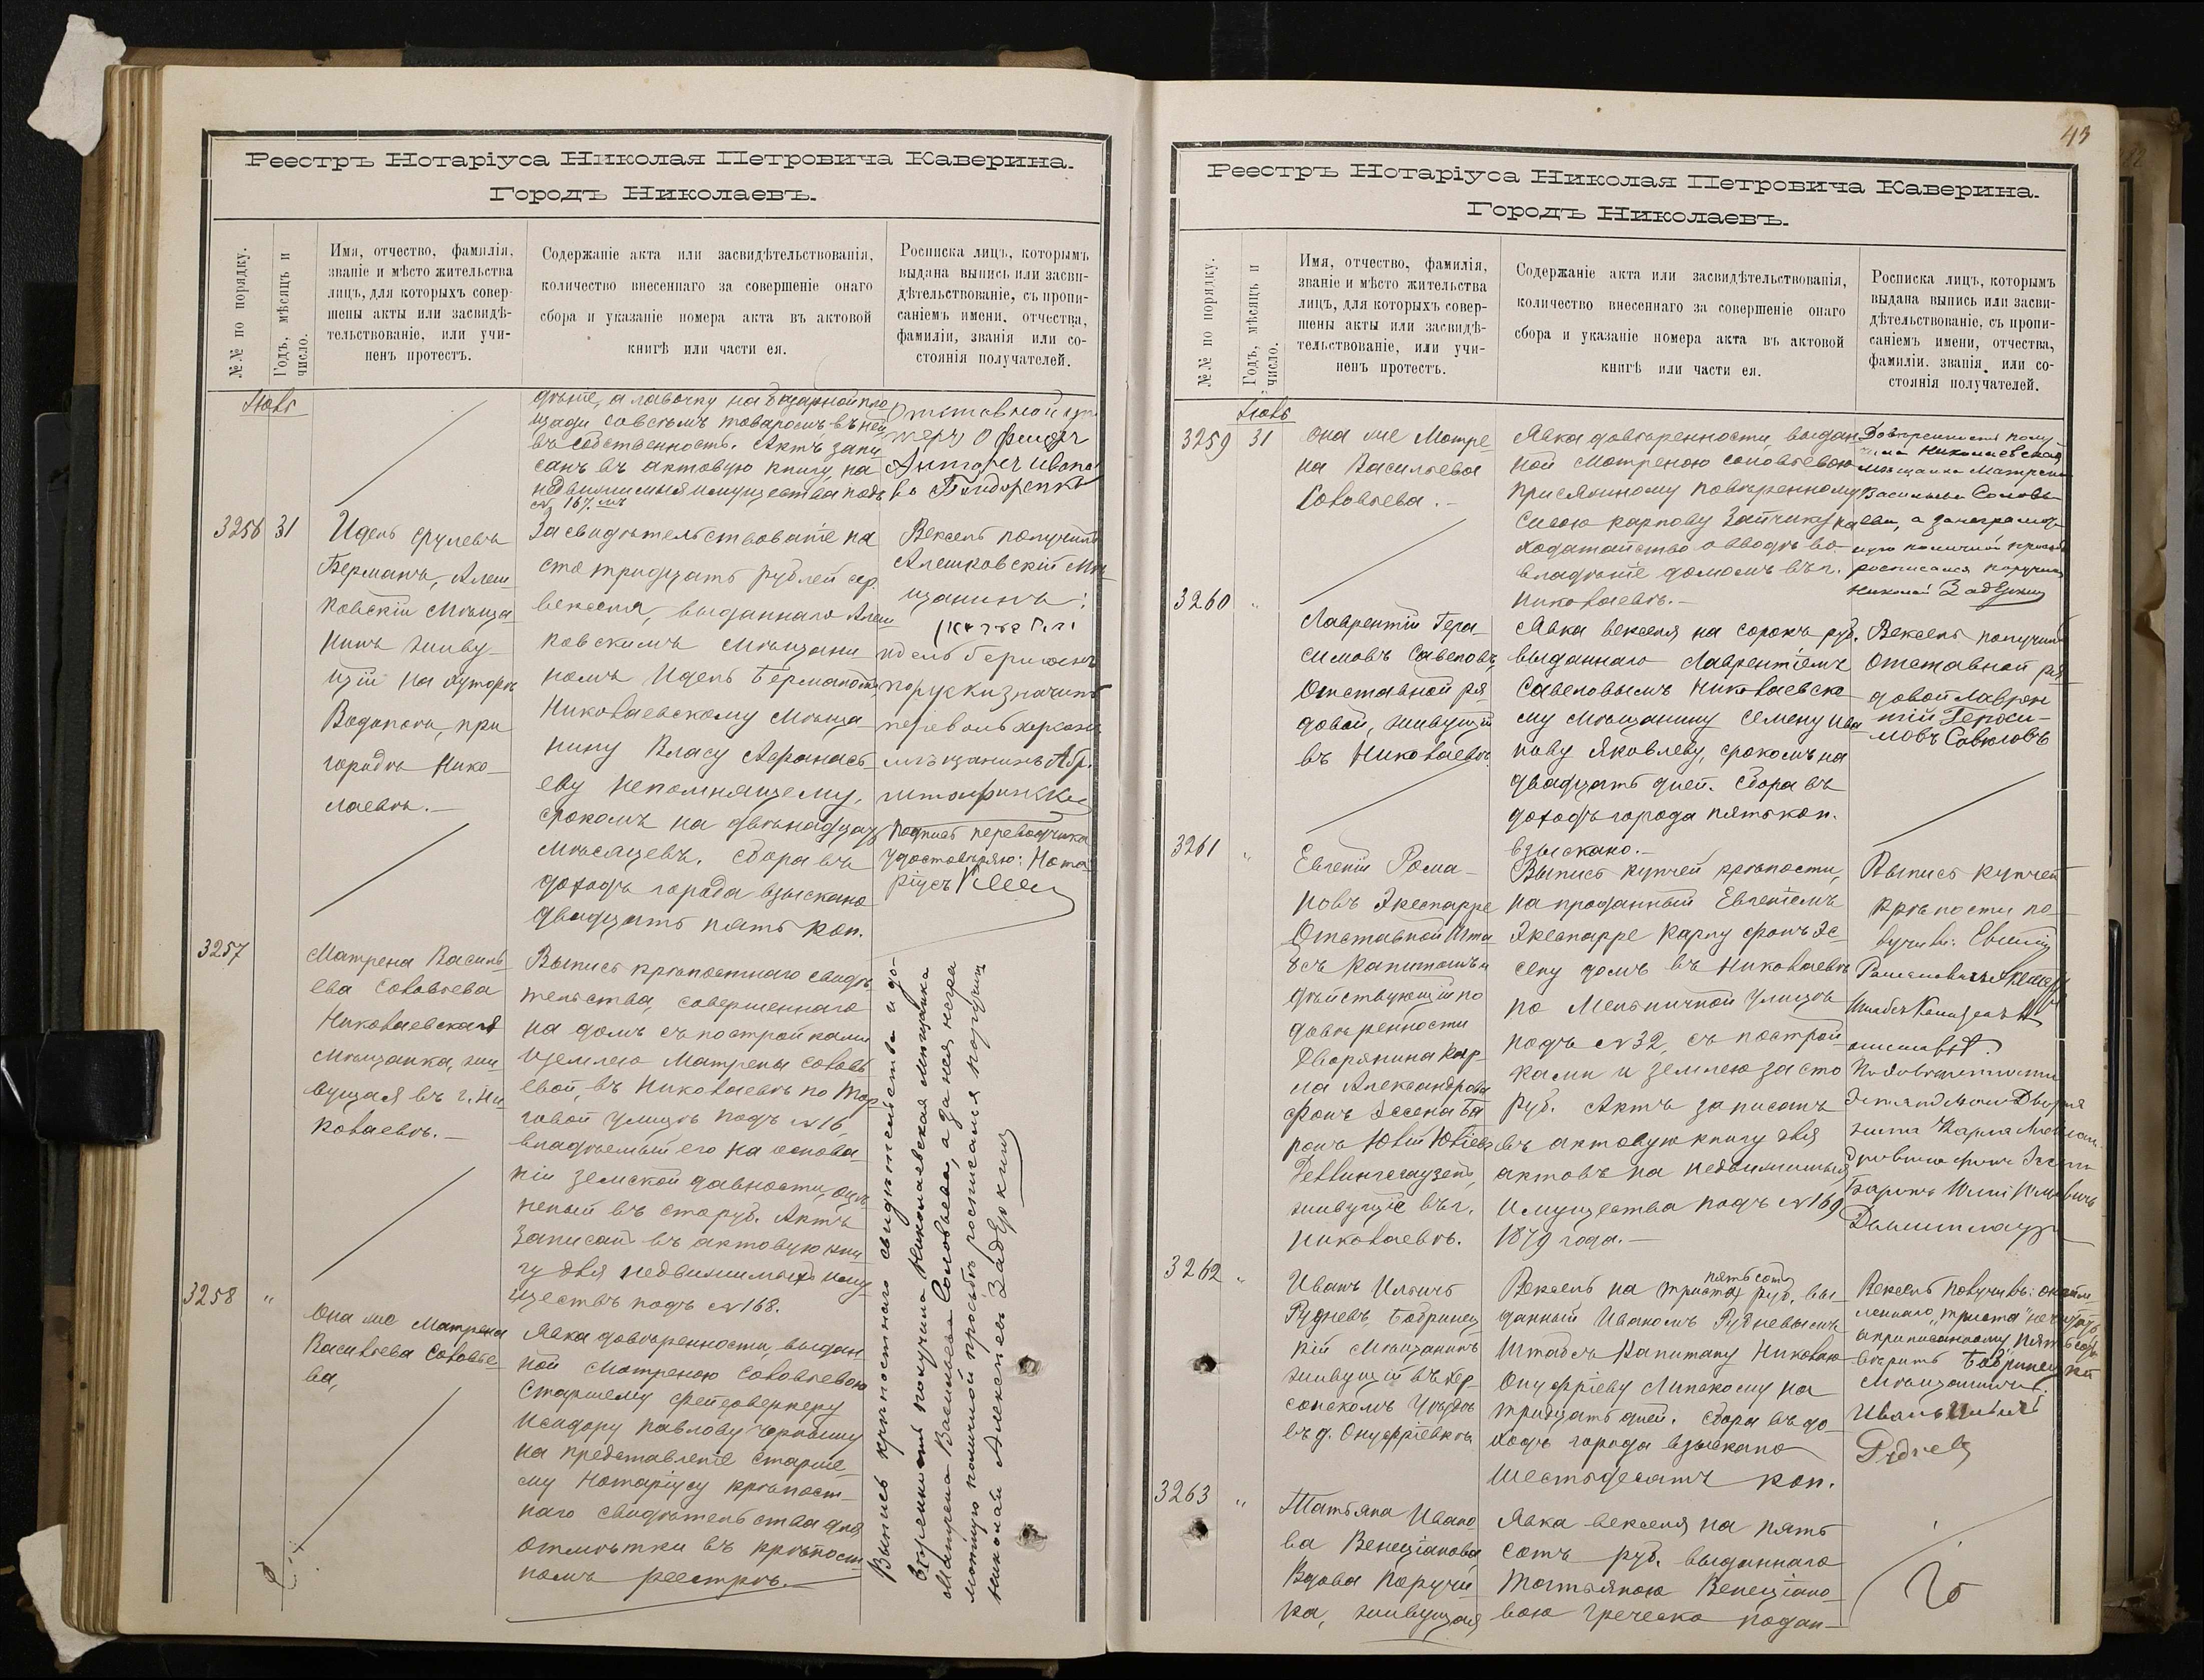 Реестръ Нотаріуса Николая Петровича Каверина.
Городъ Николаевъ.
№№ по порядку.
Годъ, мѣсяцъ и
число.
Имя, отчество, фамилія,
званіе и мѣсто жительства
лицъ, для которыхъ совер-
шены акты или засвидѣ-
тельствованіе, или учи-
ненъ протестъ.
Содержаніе акта или засвидѣтельствованія,
количество внесеннаго за совершеніе онаго
сбора и указаніе номера акта въ актовой
книгѣ или части ея.
Росписка лицъ, которымъ
выдана выпись или засви-
дѣтельствованіе, съ пропи-
саніемъ имени, отчества,
фамиліи, званія или со-
стоянія получателей.
дѣніе, а лавочку на базарной пло
щади со всѣмъ товаромъ въ ней
въ собственность. Актъ запи
санъ въ актовую книгу, на
недвижимыя имущества подъ
№ 167.
Отставной ун
теръ Офицеръ
3256
31
Идель Срулевъ
Берманъ, Алеш
ковскій мѣща
нинъ живу-
щій на хуторѣ
Водопоѣ, при
городѣ Нико-
лаевѣ.—
Засвидѣтельствованіе на
сто тридцать рублей сер.
векселя, выданнаго Алеш
ковскимъ мѣщани
номъ Идель Берманомъ
Николаевскому мѣща
нину Власу Афанась
еву Непомнящему,
срокомъ на двѣнадцать
мѣсяцевъ. Сбора въ
доходъ города взыскано
двадцать пять коп.
Вексель получилъ
Алешковскій мѣ
щанинъ:
идель берманъ
порусски значитъ
Подпись переводчика
удостовѣряю: Нота
ріусъ
3257
Матрена Василь
ева Соловьева
Николаевская
мѣщанка, жи
вущая въ г. Ни
колаевѣ.—
Выпись крѣпостнаго свидѣ
тельства, совершеннаго
на домъ съ постройками
и землею Матрены Соловь
евой, въ Николаевѣ по Тор
говой улицѣ подъ № 16,
владѣемый его на основа-
ніи земской давности, оцѣ
неный въ сто руб. Актъ
записанъ въ актовую кни
гу для недвижимыхъ иму
ществъ подъ № 168.
Выпись крѣпостнаго свидѣтельства и до-
вѣренность получила Николаевская мѣщанка
Матрена Васильева Соловьева, а за нея негра
мотную по личной просьбѣ росписался поручикъ
Николай Алексѣевъ Задеркинъ
3258
"
Она же Матрена
Васильева Соловье-
ва,
Явка довѣренности, выдан
ной Матреною Соловьевою
Старшему фейерверкеру
Исидору Павлову
на представленіе старше-
му Нотаріусу крѣпост-
наго свидѣтельства для
отмѣтки въ крѣпост-
номъ реестрѣ.—
43
Реестръ Нотаріуса Николая Петровича Каверина.
Городъ Николаевъ.
№№ по порядку.
Годъ, мѣсяцъ и
число.
Имя, отчество, фамилія,
званіе и мѣсто жительства
лицъ, для которыхъ совер-
шены акты или засвидѣ-
тельствованіе, или учи-
ненъ протестъ.
Содержаніе акта или засвидѣтельствованія,
количество внесеннаго за совершеніе онаго
сбора и указаніе номера акта въ актовой
книгѣ или части ея.
Росписка лицъ, которымъ
выдана выпись или засви-
дѣтельствованіе, съ пропи-
саніемъ имени, отчества,
фамиліи. званія или со-
стоянія получателей.
3259
31
Она же Матре
на Васильева
Соловьева.—
Явка довѣренности, выдан
ной Матреною Соловьевою
присяжному повѣренному
Сисою Карпову Зайчику на
ходатайство о вводѣ во
владѣніе домомъ въ г.
Николаевѣ.—
Довѣренность полу
чила Николаевская
мѣщанка Матрена
Васильева Соловь
ева, а за неграмот
ную по личной просьбѣ
росписался поручикъ
Николай Задеркинъ
3260
"
Лаврентій Гера-
симовъ Савеловъ,
Отставной ря
довой, живущій
въ Николаевѣ.
Явка векселя на сорокъ руб.
выданнаго Лаврентіемъ
Савеловымъ Николаевско
му мѣщанину Семену Ива
нову Яковлеву, срокомъ на
двадцать дней. Сбора въ
доходъ города пять коп.
взыскано.—
Вексель получилъ
Отставной ря
довой Лаврен
тій Гераси-
мовъ Савеловъ
3261
"
Евгеній Рома-
новъ Экеспарре
Отставной Шта
бсъ Капитанъ и
дѣйствующій по
довѣренности
Дворянина Кар-
ла Александрова
фонъ Эссена Ба
ронъ Юлій Юліевъ
Деллинсгаузенъ,
живущіе въ г.
Николаевѣ.
Выпись купчей крѣпости,
на проданный Евгеніемъ
Экеспарре Карлу фонъ Эс
сену домъ въ Николаевѣ
по Мельничной улицѣ
подъ № 32, съ построй-
ками и землею за сто
руб. Актъ записанъ
въ актовую книгу для
актовъ на недвижимыя
имущества подъ № 169
1879 года.—
Выпись купчей
крѣпости по-
лучилъ: Евгеній
Штабсъ Капитанъ
По довѣренности
3262
"
Иванъ Ильичъ
Рудневъ, Бобринец
кій мѣщанинъ
живущій въ Хер-
сонскомъ уѣздѣ
въ д. Онуфріевкѣ
Вексель на триста пятьсотъ руб. вы-
данный Иваномъ Рудневымъ
Штабсъ Капитану Николаю
Онуфріеву Липскому на
тридцать дней. Сбора въ до
ходъ города взыскано
шестьдесятъ коп.
Вексель получилъ:
„триста" не читать,
а приписанному „пятьсотъ
вѣрить Бобринецкій
мѣщанинъ
Иванъ Ильичъ
Рудневъ
3263
"
Татьяна Ивано
ва Венеціанова
Вдова Поручи
ка, живущая
Явка векселя на пять
сотъ руб. выданнаго
Татьяною Венеціано
вою греческо подан-